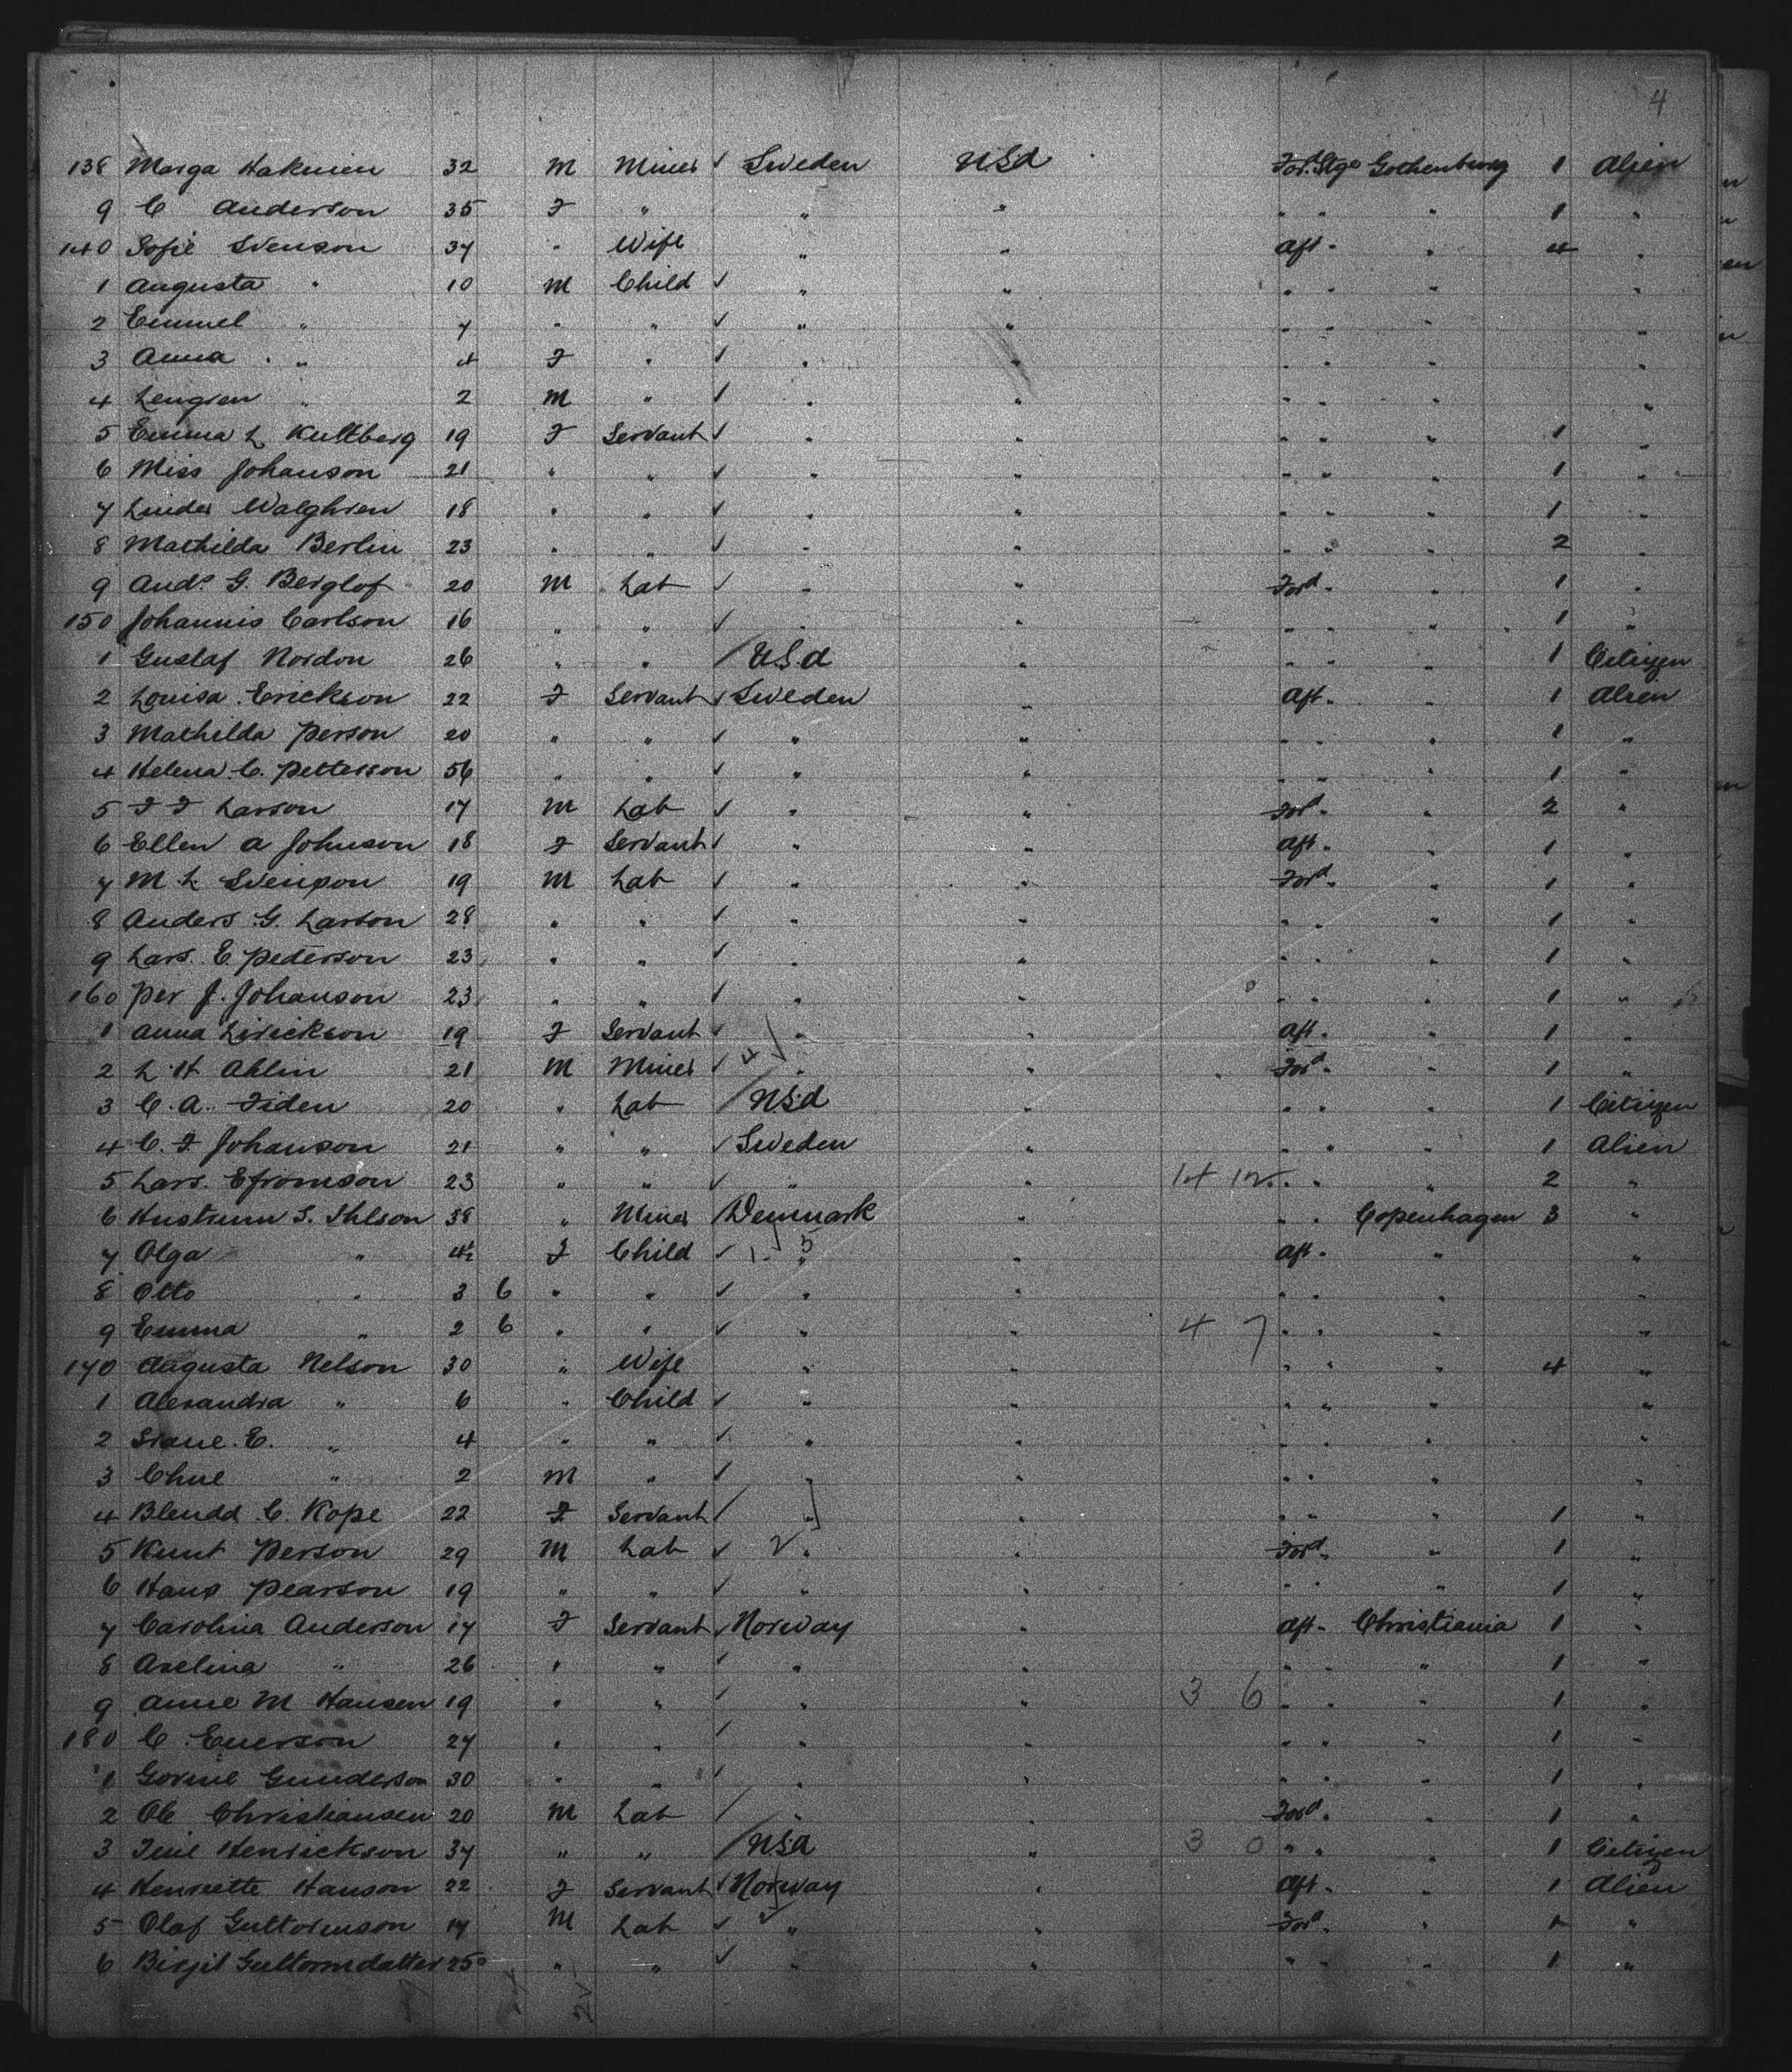 4
138 Marga Hakmien 32 M Miner ✓ Sweden U.S.A For. Stge Gothenburg 1 Alien
9 C Anderson 35 F " " " " " " 1 "
140 Sofie Svenson 34 " Wife " " Aft " " 4 "
1 Augusta " 10 M Child ✓ " " " " " "
2 Emmel " 7 " " ✓ " " " " " "
3 Anna " 4 F " ✓ " " " " " "
4 Lengren " 2 M " ✓ " " " " " "
5 Emma L Kullberg 19 F Servant ✓ " " " " " 1 "
6 Miss Johanson 21 " " ✓ " " " " " 1 "
7 Linder Walghren 18 " " ✓ " " " " " 1 "
8 Mathilda Berlin 23 " " ✓ " " " " " 2 "
9 And. G. Berglof 20 M Lab ✓ " " Ford " " 1 "
150 Johannis Carlson 16 " " ✓ " " " " " 1 "
1 Gustaf Nordon 26 " " / U.S.A " " " " 1 Citizen
2 Louisa Erickson 22 F Servant ✓ Sweden " Aft " " 1 Alien
3 Mathilda Person 20 " " ✓ " " " " " 1 "
4 Helena C. Petterson 56 " " ✓ " " " " " 1 "
5 F F Larson 17 M Lab ✓ " " Ford " " 2 "
6 Ellen A Johnson 18 F Servant ✓ " " Aft " " 1 "
7 M L Svenson 19 M Lab ✓ " " Ford " " 1 "
8 Anders G. Larson 28 " " ✓ " " " " " 1 "
9 Lars. E. Pederson 23 " " ✓ " " " " " 1 "
160 Per J. Johanson 23 " " ✓ " " " " " 1 "
1 Anna Lirickson 19 F Servant ✓ " " Aft " " 1 "
2 L. H Ahlin 21 M Miner ✓ 4 " " Ford " " 1 "
3 C. A. Fiden 20 " Lab / U.S.A " " " " 1 Citizen
4 C. F Johanson 21 " " ✓ Sweden " " " " 1 Alien
5 Lars. Efromson 23 " " ✓ " " 14 12 " " " 2 "
6 S. Ihlson 38 " Miner / Denmark " " " Copenhagen 3 "
7 Olga " 4½ F Child ✓ 1 5 " " Aft " " "
8 Otto " 3 6 " " ✓ " " " " " "
9 Emma " 2 6 " " ✓ " " 4 7 " " " "
170 Augusta Nelson 30 " Wife " " " " " 4 "
1 Alexandra " 6 " Child ✓ " " " " " "
2 E. " 4 " " ✓ " " " " " "
3 " 2 M " ✓ " " " " " "
4 Blendd C. Kope 22 F Servant / " " " " " 1 "
5 Knut Person 29 M Lab ✓ 2 " " Ford " " 1 "
6 Hans Pearson 19 " " ✓ " " " " " 1 "
7 Carolina Anderson 17 F Servant ✓ Norway " Aft " Christiania 1 "
8 Axelina " 26 " " ✓ " " " " " 1 "
9 Anne M Hansen 19 " " ✓ " " 3 6 " " " 1 "
180 C. Enerson 24 " " ✓ " " " " " 1 "
1 Gorine Gunderson 30 " " ✓ " " " " " 1 "
2 Ole Christiansen 20 M Lab / " " Ford " " 1 "
3 Henrickson 34 " " / U.S.A " 3 0 " " " 1 Citizen
4 Henriette Hanson 22 F Servant ✓ Norway " Aft " " 1 Alien
5 Olaf Guttormson 17 M Lab ✓ " " Ford " " 1 "
6 Birgit Guttormdatter 25 " " ✓ " " " " " 1 "